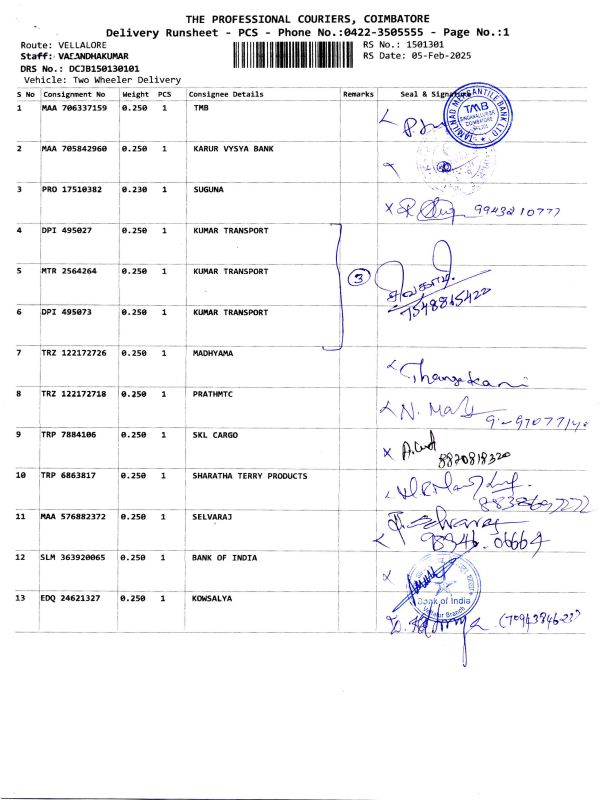 THE PROFESSIONAL COURIERS, COIMBATORE
Delivery Runsheet - PCS - Phone No.:0422-3505555 - Page No.:1
Route: VELLALORE
RS No.: 1501301
Staff: VAEANDHAKUMAR
RS Date: 05-Feb-2025
DRS No.: DCJB150130101
Vehicle: Two Wheeler Delivery
S No Consignment No Weight PCS Consignee Details Remarks Seal & Signature
1 MAA 706337159 0.250 1 TMB
TAMILNAD MERCANTILE BANK LTD
TMB
COIMBATORE
2 MAA 705842960 0.250 1 KARUR VYSYA BANK
3 PRO 17510382 0.230 1 SUGUNA
9943210777
4 DPI 495027 0.250 1 KUMAR TRANSPORT
5 MTR 2564264 0.250 1 KUMAR TRANSPORT
3
7548865422
6 DPI 495073 0.250 1 KUMAR TRANSPORT
7 TRZ 122172726 0.250 1 MADHYAMA
Thangakani
8 TRZ 122172718 0.250 1 PRATHMTC
9 TRP 7884106 0.250 1 SKL CARGO
8820818320
10 TRP 6863817 0.250 1 SHARATHA TERRY PRODUCTS
11 MAA 576882372 0.250 1 SELVARAJ
98946.06664
12 SLM 363920065 0.250 1 BANK OF INDIA
Bank of India
13 EDQ 24621327 0.250 1 KOWSALYA